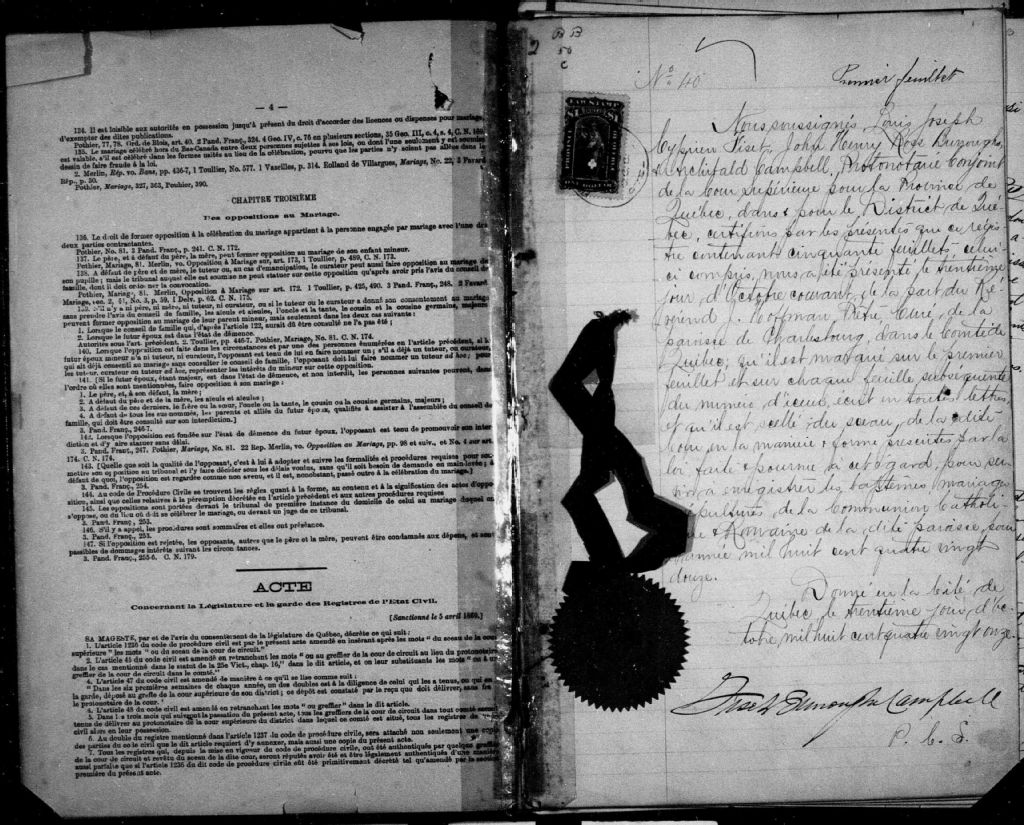 — 4 —
134. Il est loisible aux autorités en possession jusqu'à présent du droit d'accorder des licences ou dispenses pour mariage,
d'exempter des dites publications.
Pothier, 77, 78. Ord. de Blois, art. 40. 2 Pand. Franç., 324. 4 Geo. IV, c. 75 en plusieurs sections, 35 Geo. III, c. 4, s. 4, C. N. 169.
135. Le mariage célébré hors du Bas-Canada entre deux personnes sujettes à ses lois, ou dont l'une seulement y est soumise
est valable, s'il est célébré dans les formes usitées au lieu de la célébration, pourvu que les parties n'y soient pas allées dans le
dessin de faire fraude à la loi.
2. Merlin, Rép. vo. Bans, pp. 436-7, 1 Toullier, No. 577. 1 Vazeilles, p. 314. Rolland de Villargues, Mariage, No. 22, 3 Favard
Rép., p. 50.
Pothier, Mariage, 327, 363, Pouhier, 390.
CHAPITRE TROISIÈME
Des oppositions au Mariage.
136. Le droit de former opposition à la célébration du mariage appartient à la personne engagée par mariage avec l'une des
deux parties contractantes.
Pothier, No. 81, 3 Pand. Franç., p. 241. C. N. 172.
137. Le père, et à défaut du père, la mère, peut former opposition au mariage de son enfant mineur.
Pothier, Mariage, 81. Merlin, vo. Opposition à Mariage, sur art. 173, 1 Toullier, p. 489, C. N. 173.
138. A défaut de père et de mère, le tuteur, ou, au cas d'émancipation, le curateur peut aussi faire opposition au mariage de
son pupille ; mais le tribunal auquel elle est soumise ne peut statuer sur cette opposition qu'après avoir pris l'avis du conseil de
famille, dont il doit ordonner la convocation.
Pothier, Mariage, 81. Merlin, Opposition à Mariage sur art. 172. 1 Toullier, p. 425, 490. 3 Pand. Franç., 248. 2 Favard
C. N. 175.
139. S'il n'y a ni père, ni mère, ni tuteur, ni curateur, ou si le tuteur ou le curateur a donné son consentement au mariage
sans prendre l'avis du conseil de famille, les aïeuls et aïeules, l'oncle et la tante, le cousin et la cousine germains, majeurs,
peuvent former opposition au mariage de leur parent mineur, mais seulement dans les deux cas suivants :
1. Lorsque le conseil de famille qui, d'après l'article 122, aurait dû être consulté ne l'a pas été ;
2. Lorsque le futur époux est dans l'état de démence.
Autorités sous l'art. précédent. 2. Toullier, pp. 446-7. Pothier, Mariage, No. 81. C. N. 174.
140. Lorsque l'opposition est faite dans les circonstances et par une des personnes énumérées en l'article précédent, si le
futur époux mineur n'a ni tuteur, ni curateur, l'opposant est tenu de lui en faire nommer un ; s'il a déjà un tuteur, ou curateur,
qui ait déjà consenti au mariage sans consulter le conseil de famille, l'opposant doit lui faire nommer un tuteur ad hoc ; pour
les tuteur, curateur ou tuteur ad hoc, représenter les intérêts du mineur sur cette opposition.
141. [Si le futur époux, étant majeur, est dans l'état de démence, et non interdit, les personnes suivantes peuvent, dans
l'ordre où elles sont mentionnées, faire opposition à son mariage :
1. Le père, et, à son défaut, la mère ;
2. A défaut du père et de la mère, les aïeuls et aïeules ;
3. A défaut de ces derniers, le frère ou la sœur, l'oncle ou la tante, le cousin ou la cousine germains, majeurs ;
4. A défaut de tous les sus-nommés, les parents et alliés du futur époux, qualifiés à assister à l'assemblée du conseil de
famille, qui doit être consulté sur son interdiction.]
3. Pand. Franç., 246-7.
142. Lorsque l'opposition est fondée sur l'état de démence du futur époux, l'opposant est tenu de promouvoir son inter-
diction et d'y aire statuer sans délai.
3. Pand. Franç., 247. Pothier, Mariage, No. 81. 22 Rep. Merlin, vo. Opposition au Mariage, pp. 98 et suiv., et No. 4 sur art.
174. C. N. 174.
143. [Quelle que soit la qualité de l'opposant, c'est à lui à adopter et suivre les formalités et procédures requises pour sou-
mettre son opposition au tribunal et l'y faire décider sous les délais voulus, sans qu'il soit besoin de demande en main-levée ; à
défaut de quoi, l'opposition est regardée comme non avenue, et il est, nonobstant, passé outre à la célébration du mariage.]
3. Pand. Franç., 254.
144. Au code de Procédure Civile se trouvent les règles quant à la forme, au contenu et à la signification des actes d'oppo-
sition, ainsi que celles relatives à la péremption décrétée en l'article précédent et aux autres procédures requises
145. Les oppositions sont portées devant le tribunal de première instance du domicile de celui au mariage duquel on
s'oppose, ou du lieu où doit se célébrer le mariage, ou devant un juge de ce tribunal.
3. Pand. Franç., 253.
146. S'il y a appel, les procédures sont sommaires et elles ont préséance.
3. Pand. Franç., 253.
147. Si l'opposition est rejetée, les opposants, autres que le père et la mère, peuvent être condamnés aux dépens, et sont
passibles de dommages intérêts suivant les circonstances.
3. Pand. Franç., 255-6. C. N. 179.
ACTE
Concernant la Législature et la garde des Registres de l'Etat Civil.
[Sanctionné le 5 avril 1869.]
SA MAGESTÉ, par et de l'avis du consentement de la législature de Québec, décrète ce qui suit :
1. L'article 1236 du code de procédure civil est par le présent acte amendé en insérant après les mots " du sceau de la cour
supérieure " les mots " ou du sceau de la cour de circuit."
2. L'article 45 du code civil est amendé en retranchant les mots " ou au greffier de la cour de circuit au lieu du protonotaire
dans le cas mentionné dans le statut de la 25e Vict., chap. 16," dans le dit article, et en leur substituants les mots " ou à un
greffier de la cour de circuit dans le comté."
4. L'article 47 du code civil est amendé de manière à ce qu'il se lise comme suit :
" Dans les six premières semaines de chaque année, un des doubles est à la diligence de celui qui les a tenus, ou qui en
la garde, déposé au greffe de la cour supérieure de son district ; ce dépôt est constaté par le reçu que doit délivrer, sans frais
le protonotaire de la cour."
4. L'article 48 du code civil est amendé en retranchant les mots " ou greffier " dans le dit article.
5. Dans les trois mois qui suivront la passation du présent acte, tous les greffiers de la cour de circuit dans tout comté seront
tenus de délivrer au protonotaire de la cour supérieure du district dans lequel ce comté est situé, tous les registres de l'état
civil alors en leur possession.
6. Au double du registre mentionné dans l'article 1237 du code de procédure civile, sera attaché non seulement une copie
des parties du code civil que le dit article requiert d'y annexer, mais aussi une copie du présent acte.
7. Tous les registres qui, depuis la mise en vigueur du code de procédure civile, ont été authentiqués par quelque greffier
de la cour de circuit et revêtu du sceau de la dite cour, seront réputés avoir été et être légalement authentiqués d'une manière
aussi parfaite que si l'article 1236 du dit code de procédure civile eût été primitivement décrété tel qu'amendé par la section
première du présent acte.
B B
50
c
No 40
Premier feuillet
LAW STAMP
Nous soussignés, Louis Joseph
Cyprien Fiset, John Henry Ross Burroughs,
& Archibald Campbell, Protonotaire Conjoint
de la Cour Supérieure pour la Province de
Québec, dans & pour le District de Qué-
bec, certifions par les présentes que ce regis-
tre contenant cinquante feuillets celui-
ci compris, nous a été présenté le trentième
jour d'Octobre courant, de la part du Ré-
vérend J. Hoffman, Ptre, Curé, de la
paroisse de Charlesbourg, dans le Comté de
Québec, qu'il est marqué sur le premier
feuillet et sur chaque feuille subséquente
du numéro d'icelui, écrit en toutes lettres,
et qu'il est scellé du sceau de la dite
Cour en la manière & forme prescrites par la
loi faite & pourvue à cet égard, pour ser-
vir à enregistrer les baptêmes, mariages
sépultures, de la Communion Catholi-
que & Romaine de la dite paroisse, pour
l'année mil huit cent quatre vingt
douze.
Donné en la Cité de
Québec, le trentième jour d'Oc-
tobre, mil huit cent quatre vingt onze.
Fiset Burroughs Campbell
P. C. S.